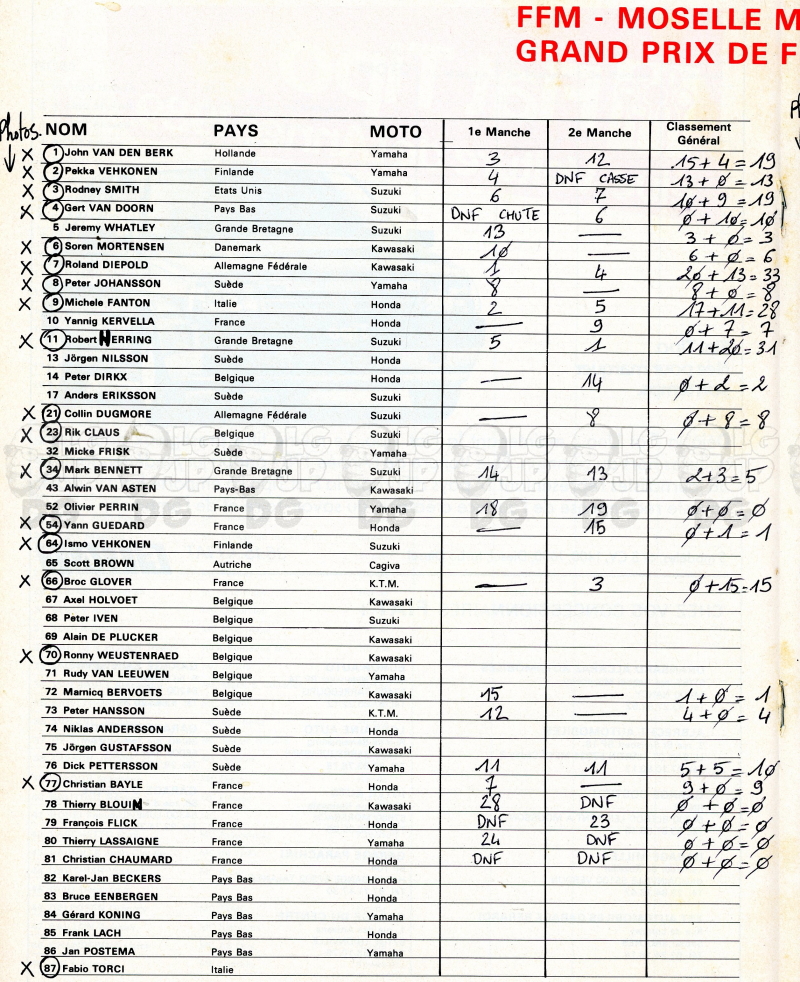 FFM - MOSELLE M
GRAND PRIX DE F
Photos. NOM PAYS MOTO 1e Manche 2e Manche Classement Général
X 1 John VAN DEN BERK Hollande Yamaha 3 12 15+4=19
X 2 Pekka VEHKONEN Finlande Yamaha 4 DNF CASSE 13+0=13
X 3 Rodney SMITH Etats Unis Suzuki 6 7 10+9=19
X 4 Gert VAN DOORN Pays Bas Suzuki DNF CHUTE 6 0+10=10
5 Jeremy WHATLEY Grande Bretagne Suzuki 13 — 3+0=3
X 6 Soren MORTENSEN Danemark Kawasaki 10 — 6+0=6
X 7 Roland DIEPOLD Allemagne Fédérale Kawasaki 1 4 20+13=33
X 8 Peter JOHANSSON Suède Yamaha 8 — 8+0=8
X 9 Michele FANTON Italie Honda 2 5 17+11=28
10 Yannig KERVELLA France Honda — 9 0+7=7
X 11 Robert HERRING Grande Bretagne Suzuki 5 1 11+20=31
13 Jörgen NILSSON Suède Honda
14 Peter DIRKX Belgique Honda — 14 0+2=2
17 Anders ERIKSSON Suède Suzuki
X 21 Collin DUGMORE Allemagne Fédérale Suzuki — 8 0+8=8
X 23 Rik CLAUS Belgique Suzuki
32 Micke FRISK Suède Yamaha
X 34 Mark BENNETT Grande Bretagne Suzuki 14 13 2+3=5
43 Alwin VAN ASTEN Pays-Bas Kawasaki
52 Olivier PERRIN France Yamaha 18 19 0+0=0
X 54 Yann GUEDARD France Honda — 15 0+1=1
X 64 Ismo VEHKONEN Finlande Suzuki
65 Scott BROWN Autriche Cagiva
X 66 Broc GLOVER France K.T.M. — 3 0+15=15
67 Axel HOLVOET Belgique Kawasaki
68 Peter IVEN Belgique Suzuki
69 Alain DE PLUCKER Belgique Kawasaki
X 70 Ronny WEUSTENRAED Belgique Kawasaki
71 Rudy VAN LEEUWEN Belgique Yamaha
72 Marnicq BERVOETS Belgique Kawasaki 15 — 1+0=1
73 Peter HANSSON Suède K.T.M. 12 — 4+0=4
74 Niklas ANDERSSON Suède Honda
75 Jörgen GUSTAFSSON Suède Kawasaki
76 Dick PETTERSSON Suède Yamaha 11 11 5+5=10
X 77 Christian BAYLE France Honda 7 — 9+0=9
78 Thierry BLOUIN France Kawasaki 28 DNF 0+0=0
79 François FLICK France Honda DNF 23 0+0=0
80 Thierry LASSAIGNE France Yamaha 24 DNF 0+0=0
81 Christian CHAUMARD France Honda DNF DNF 0+0=0
82 Karel-Jan BECKERS Pays Bas Honda
83 Bruce EENBERGEN Pays Bas Honda
84 Gérard KONING Pays Bas Yamaha
85 Frank LACH Pays Bas Honda
86 Jan POSTEMA Pays Bas Yamaha
X 87 Fabio TORCI Italie